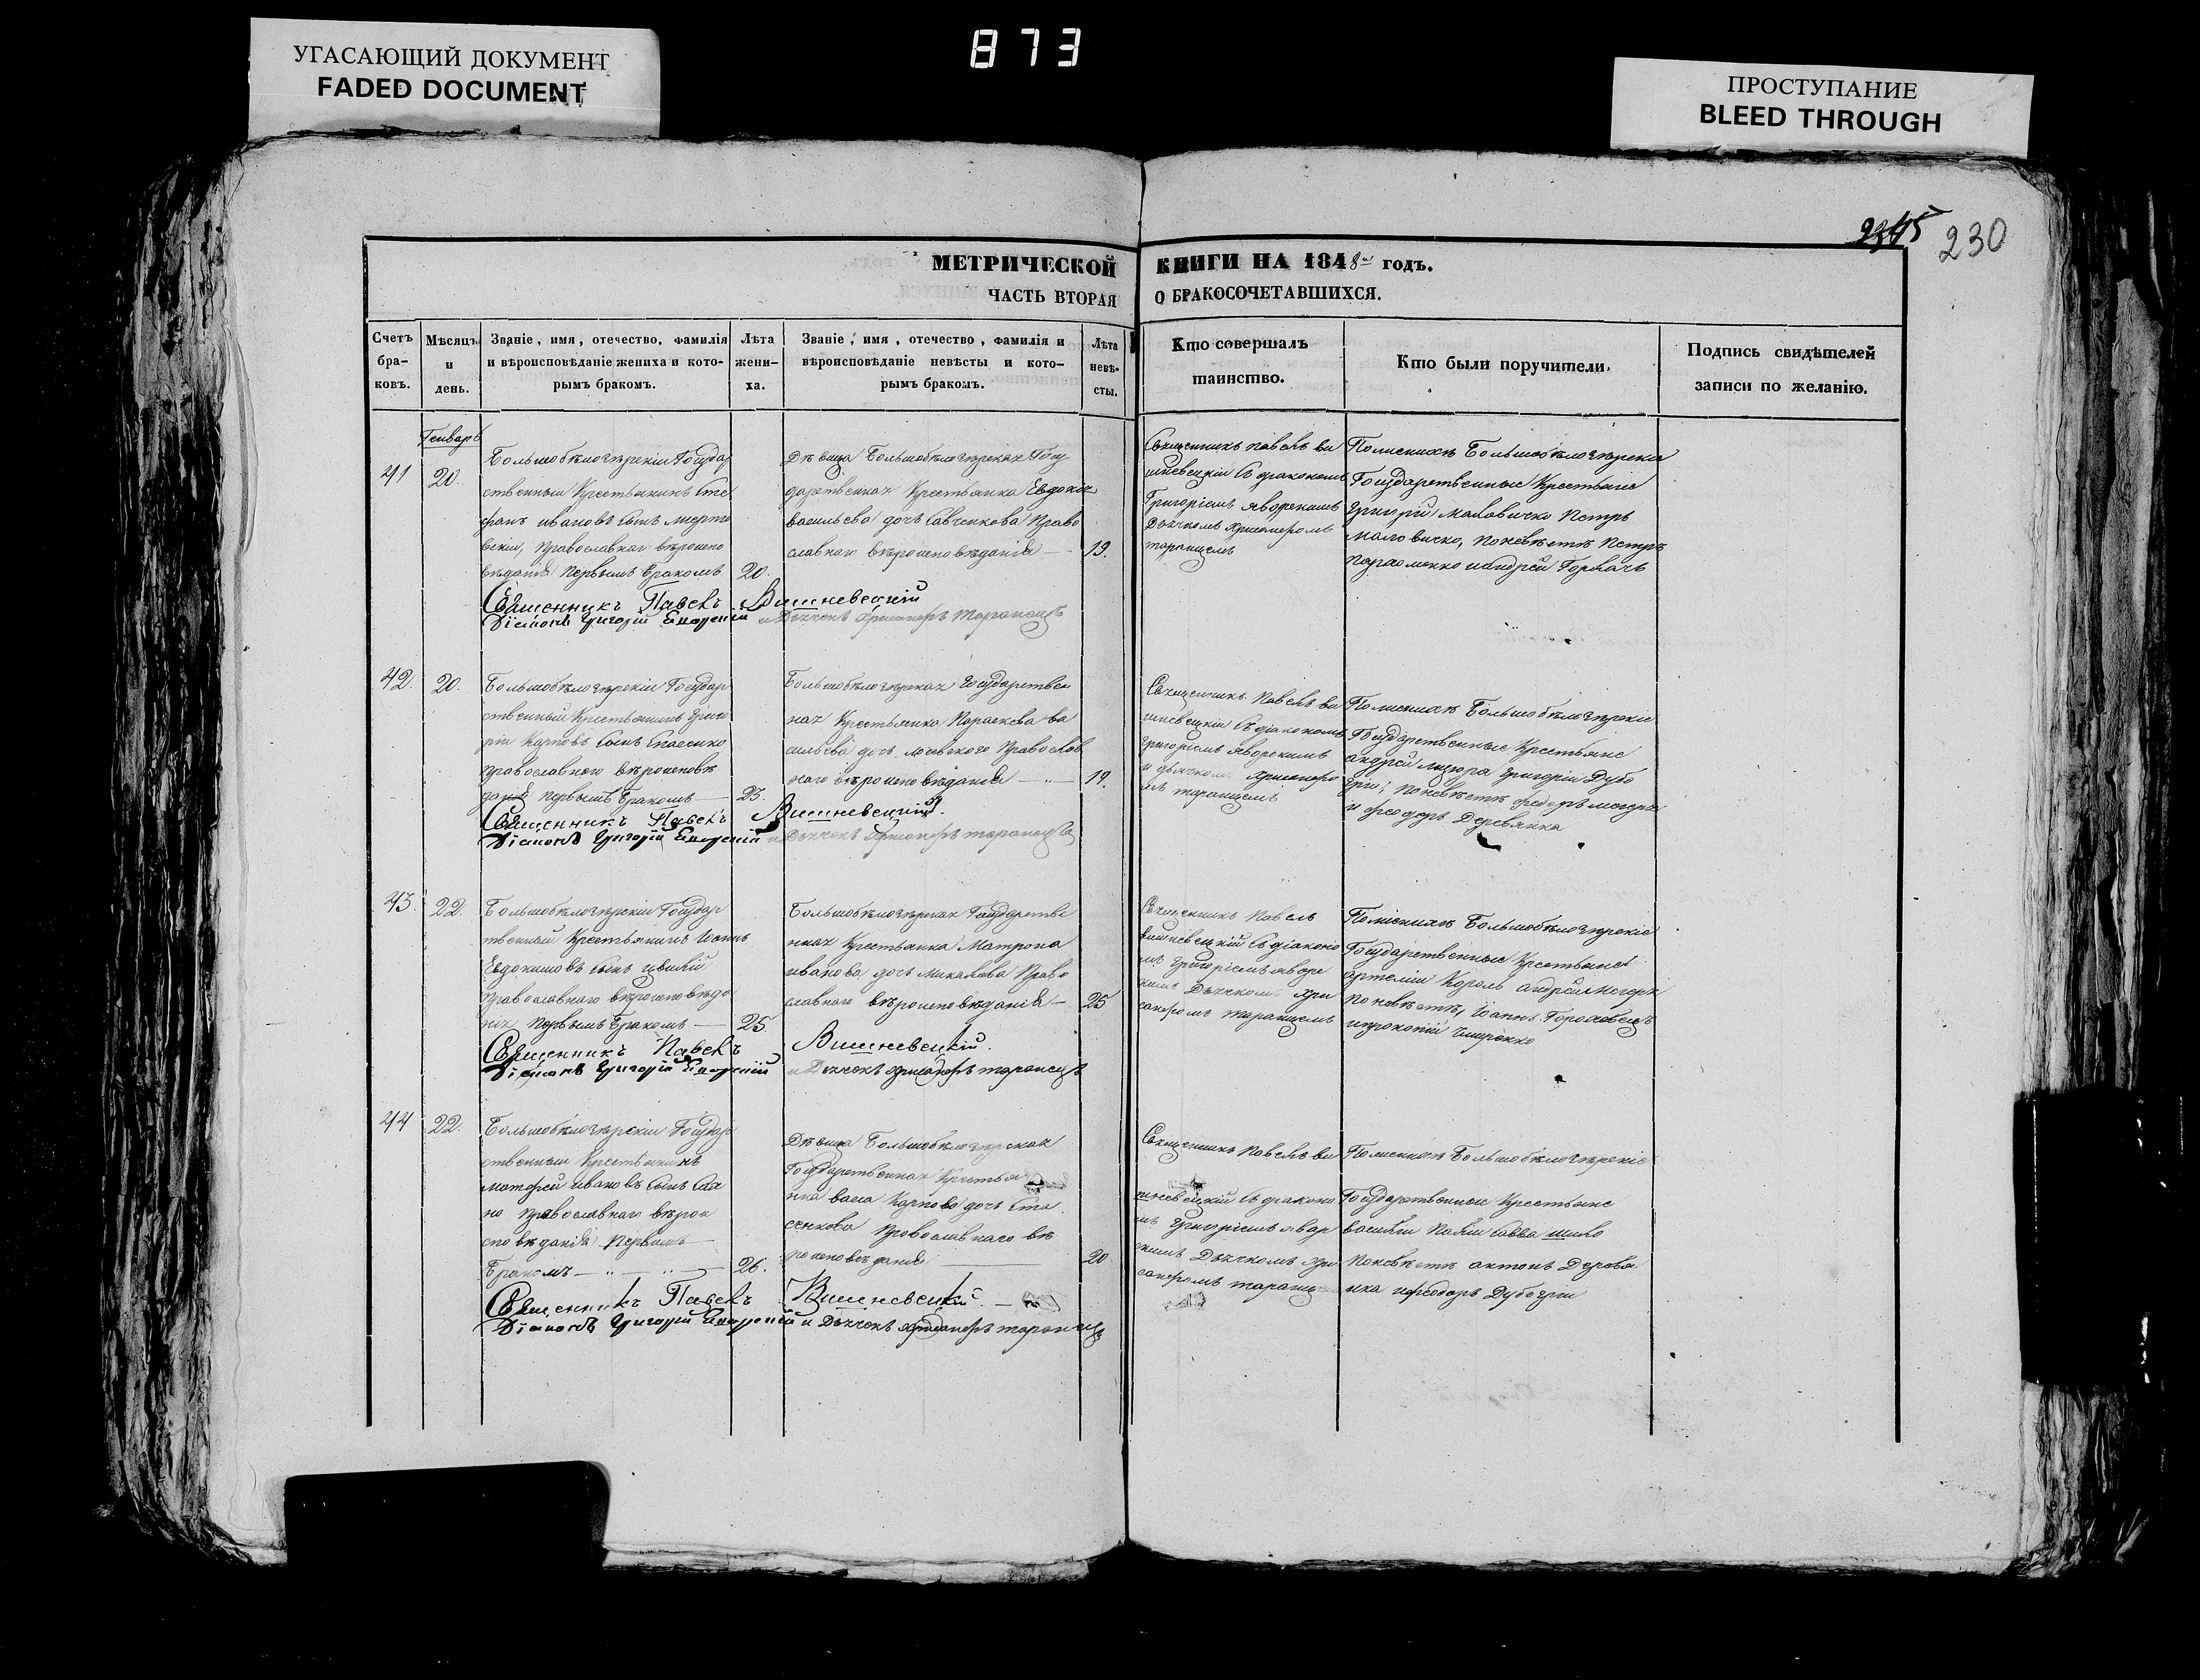 УГАСАЮЩИЙ ДОКУМЕНТ
FADED DOCUMENT
873
ПРОСТУПАНИЕ
BLEED THROUGH
230
МЕТРИЧЕСКОЙ КНИГИ НА 1848 годъ.
ЧАСТЬ ВТОРАЯ О БРАКОСОЧЕТАВШИХСЯ.
Счетъ бра-ковъ.
Мѣсяцъ и день.
Званіе, имя, отечество, фамилія и вѣроисповѣданіе жениха и кото-рымъ бракомъ.
Лѣта жени-ха.
Званіе, имя, отечество, фамилія и вѣроисповѣданіе невѣсты и кото-рымъ бракомъ.
Лѣта невѣ-сты.
Кто совершалъ таинство.
Кто были поручители.
Подпись свидѣтелей записи по желанію.
Генварь
41
20.
Большобѣлозѣрскій Государ
ственный Крестьянинъ Сте
фанъ ивановъ сынъ
Православнаго вѣроиспо
вѣданія первымъ бракомъ
20.
Дѣвица Большобѣлозѣрская Госу
дарственная Крестьянка Евдокія
васильева дочь Савченкова Право
славнаго вѣроисповѣданія
19.
Священникъ Павелъ ви
шневецкій съ діакономъ
Григоріемъ яворскимъ
Дьячкомъ
таранцемъ
По женихѣ Большобѣлозѣрскіе
Государственные Крестьяне
Григорій Маловичко Петръ
маловичко, по невѣстѣ Петръ
Пархоменко и андрей Горбачъ
Священникъ Павелъ Вишневецкій
Діаконъ Григорій Яворскій и Дьячокъ таранецъ
42.
20.
Большобѣлозѣрскій Государ
ственный Крестьянинъ Григо
рій Карповъ сынъ
православнаго вѣроисповѣ
данія первымъ бракомъ
23.
Большобѣлозѣрская Государствен
ная Крестьянка Параскева ва
сильева дочь Православ
наго вѣроисповѣданія
19.
Священникъ Павелъ ви
шневецкій съ діакономъ
григоріемъ яворскимъ
и дьячкомъ
таранцемъ
По женихѣ Большобѣлозѣрскіе
Государственные Крестьяне
андрей Григорій Дубо
по невѣстѣ
и феодоръ Деревянка
Священникъ Павелъ Вишневецкій.
Діаконъ Григорій Яворскій и Дьячокъ таранецъ
43.
22.
Большобѣлозѣрскій Государ
твенный Крестьянинъ Іоаннъ
Евдокимовъ сынъ
Православнаго вѣроисповѣда
нія первымъ бракомъ
25.
Большобѣлозѣрская Государстве
нная Крестьянка Матрона
иванова дочь Право
славнаго вѣроисповѣданія
25
Священникъ Павелъ
вишневецкій съ діаконо
мъ григоріемъ яворс
кимъ Дьячкомъ
таранцемъ
По женихѣ Большобѣлозѣрскіе
Государственные Крестьяне
Король андрей
по невѣстѣ, Іоаннъ Гороховецъ
и прокопій
Священникъ Павелъ Вишневецкій.
Діаконъ Григорій Яворскій и Дьячокъ таранецъ
44
22.
Большобѣлозѣрскій Государ
ственный Крестьянинъ
матфей ивановъ сынъ
Православнаго вѣрои
сповѣданія первымъ
бракомъ
26.
Дѣвица Большобѣлозѣрская
Государственная Крестья
нка Карпова дочь
Православнаго вѣ
роисповѣданія
20
Священникъ Павелъ ви
шневецкій съ діаконо
мъ григоріемъ явор
скимъ Дьячкомъ
таранцемъ
По женихѣ Большобѣлозѣрскіе
Государственные Крестьяне
василій савва
по невѣстѣ антонъ Деревя
нка и феодоръ
Священникъ Павелъ Вишневецкій.
Діаконъ Григорій Яворскій и Дьячокъ таранецъ